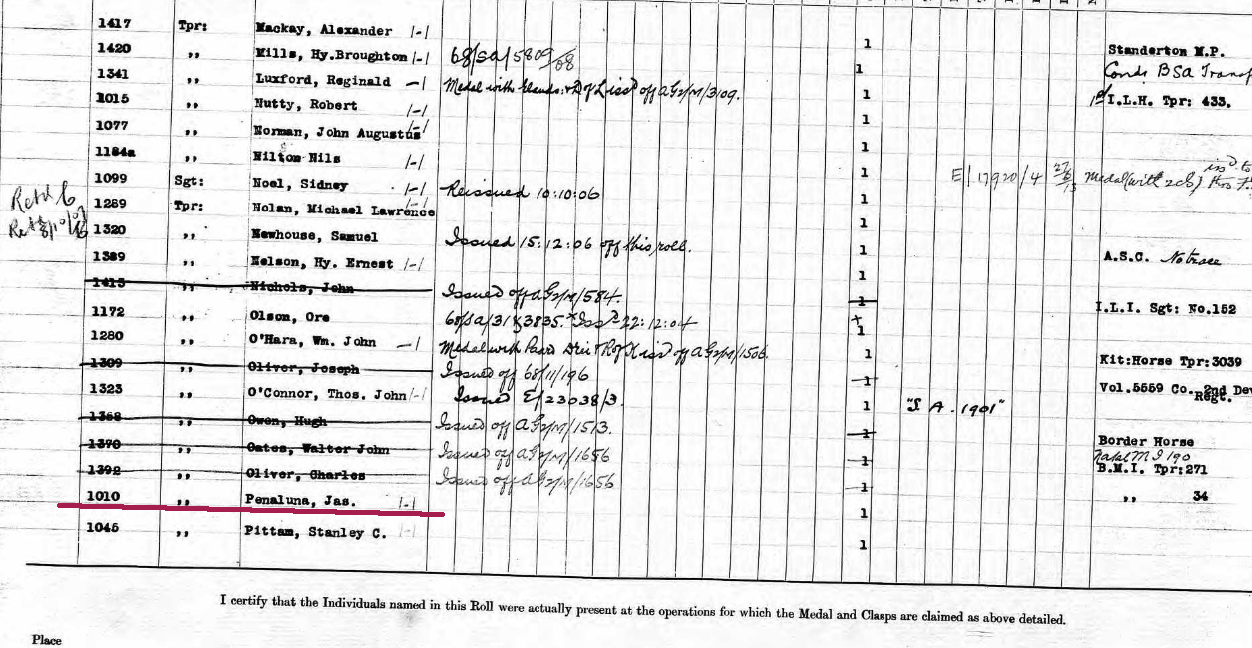 1417 Tpr: Mackay, Alexander 1-1 1
1420 ,, Mills, Hy.Broughton 1-1 68/SA/5809/08 1 Standerton M.P.
1341 ,, Luxford, Reginald -1 Medal with 1 Cond: BSA
1015 ,, Nutty, Robert 1-1 1 I.L.H. Tpr: 433.
1077 ,, Norman, John Augustus 1-1 1
1184a ,, Nilton Nils 1-1 1
1099 Sgt: Noel, Sidney 1-1 Reissued 10:10:06 1 E/17920/4 Medal (with
1289 Tpr: Nolan, Michael Lawrence 1-1 1
1320 ,, Newhouse, Samuel Issued 15:12:06 off this roll. 1
1389 ,, Nelson, Hy. Ernest 1-1 1 A.S.C. No trace
1415 ,, Nichols, John Issued off AG2/M/584. 1
1172 ,, Olson, Ore 1 I.L.I. Sgt: No.152
1280 ,, O'Hara, Wm. John -1 Medal with off AG2/M/1506. 1
1309 ,, Oliver, Joseph Issued off 68/11/196 1 Kit:Horse Tpr:3039
1323 ,, O'Connor, Thos. John 1-1 Issued E/23038/3. 1 "S.A. 1901" Vol.5559 Co. 2nd Dev Regt.
1368 ,, Owen, Hugh Issued off AG2/M/1513. 1
1370 ,, Oates, Walter John Issued off AG2/M/1656 1 Border Horse
1392 ,, Oliver, Charles Issued off AG2/M/1656 1 B.M.I. Tpr:271
1010 ,, Penaluna, Jas. 1-1 1 ,, 34
1045 ,, Pittam, Stanley C. 1-1 1
I certify that the Individuals named in this Roll were actually present at the operations for which the Medal and Clasps are claimed as above detailed.
Place